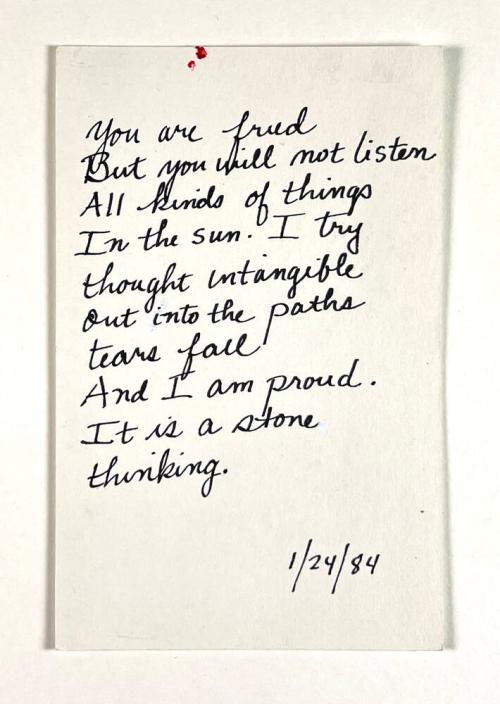 You are fried
But you will not listen
All kinds of things
In the sun. I try
thought intangible
out into the paths
tears fall
And I am proud.
It is a stone
thinking.
1/24/84